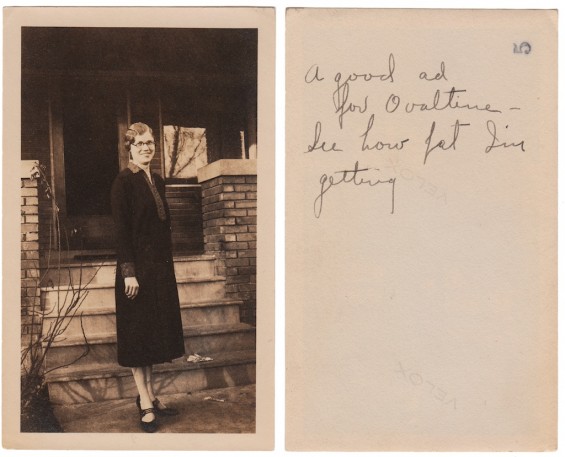 A good ad
for Ovaltine -
See how fat I'm
getting
VELOX
VELOX